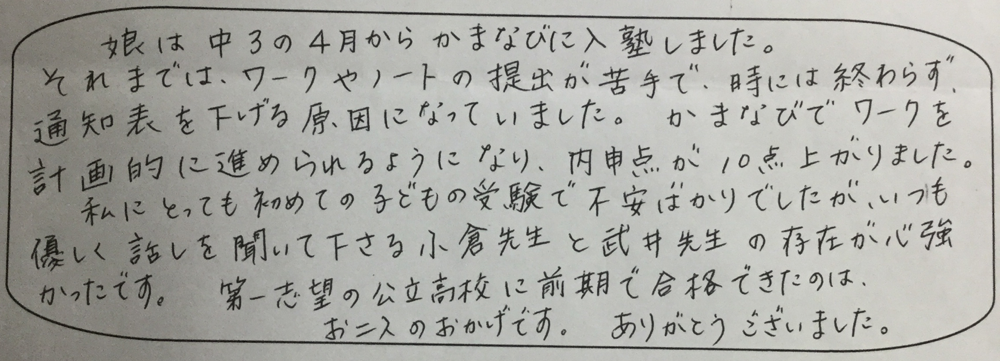 娘は中3の4月からかまなびに入塾しました。
それまでは、ワークやノートの提出が苦手で、時には終わらず、
通知表を下げる原因になっていました。 かまなびでワークを
計画的に進められるようになり、内申点が10点上がりました。
私にとっても初めての子どもの受験で不安ばかりでしたが、いつも
優しく話しを聞いて下さる小倉先生と武井先生の存在が心強
かったです。 第一志望の公立高校に前期で合格できたのは、
お二人のおかげです。 ありがとうございました。